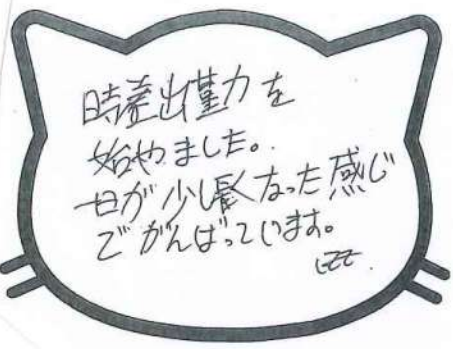 時差出勤を
始めました。
日が少し長くなった感じ
でがんばっています。